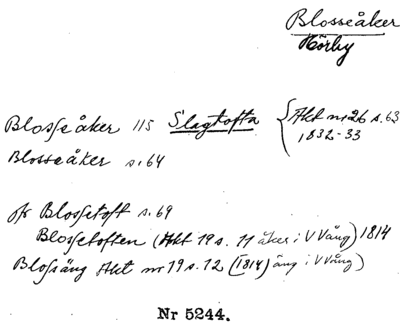 Blosseåker
Hörby
Blosseåker 115 Slagtofta { Akt nr 26 s. 63
1832-33
Blosseåker s. 64
jfr Blossetoft s. 69
Blossetoften (Akt 19 s. 11 åker i V Vång) 1814
Blossäng Akt nr 19 s. 12 (1814) äng i V Vång)
Nr 5244.